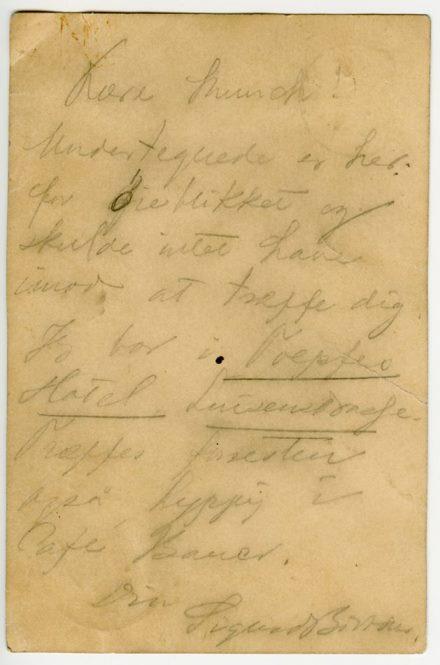 Kære Munch!
Undertegnede er her
for Øieblikket og
skulde intet have
imod at træffe dig
Jeg bor i Toepfers
Hotel, Luisenstrasse.
Træffes forresten
også hyppig i
Café Bauer.
Din
Sigurd Bødtker.